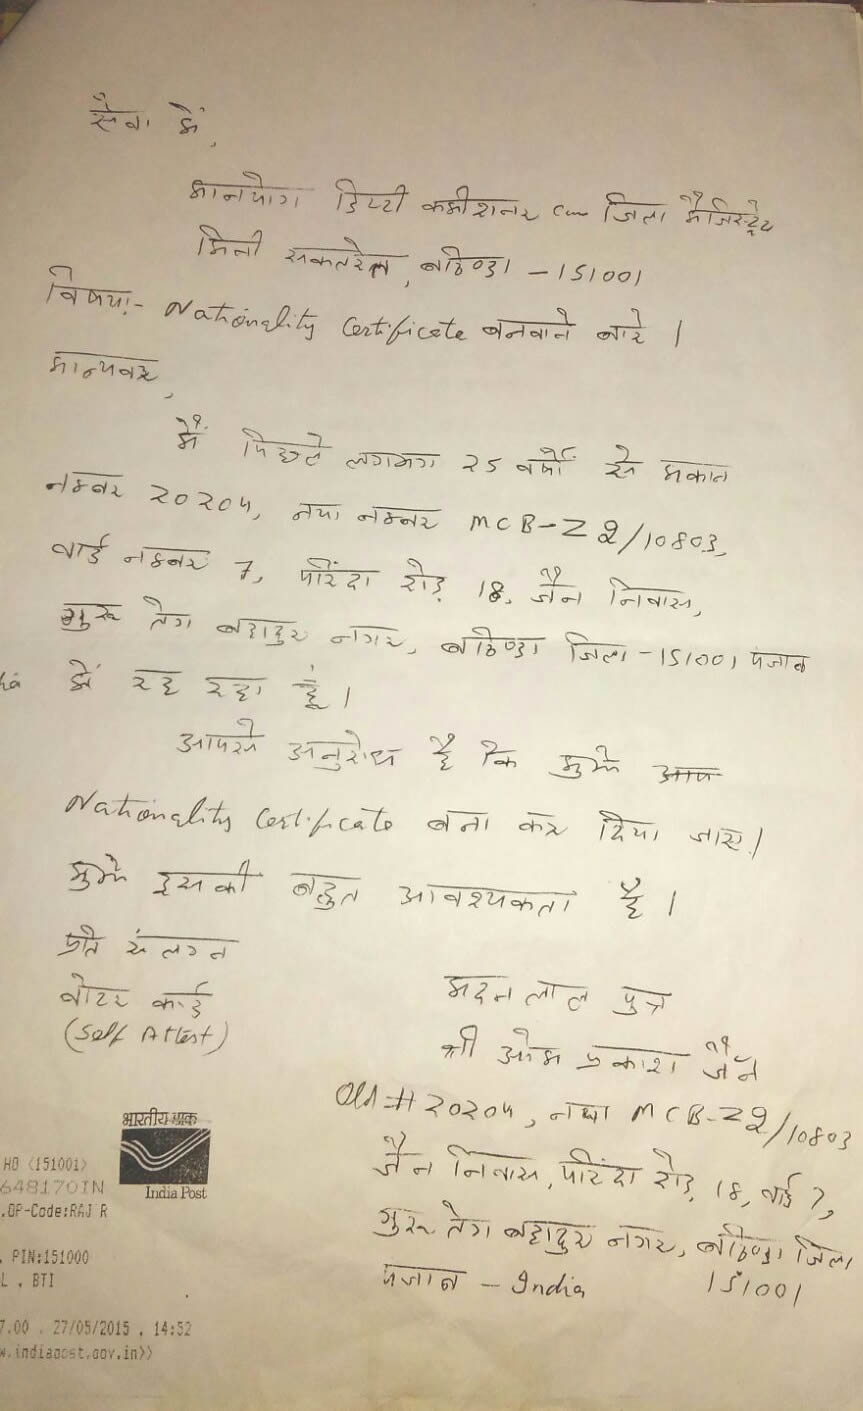 सेवा में,
मानयोग डिप्टी कमीशनर cum जिला मैजिस्ट्रेट
मिनी सकतरेत, बठिण्डा -151001
विषय:- Nationality Certificate बनवाने बारे ।
मान्यवर,
मैं पिछले लगभग 25 वर्षों से मकान
नम्बर 20204, नया नम्बर MCB-Z2/10803,
वार्ड नम्बर 7, परिंदा रोड़ 18, जैन निवास,
गुरू तेग बहादुर नगर, बठिण्डा जिला -151001 पंजाब
में रह रहा हूं ।
आपसे अनुरोध है कि मुझे आप
Nationality Certificate बना कर दिया जाए ।
मुझे इसकी बहुत आवश्यकता है ।
प्रति संलग्न
वोटर कार्ड
(Self Attest)
मदन लाल पुत्र
श्री ओम प्रकाश जैन
Old # 20204, नया MCB-Z2/10803
जैन निवास, परिंदा रोड़ 18, वार्ड 7,
गुरू तेग बहादुर नगर, बठिण्डा जिला
पंजाब - India 151001
भारतीय डाक
India Post
HO <151001>
648170IN
.OP-Code:RAJ R
, PIN:151000
L , BTI
7.00 , 27/05/2015 , 14:52
w.indiapost.gov.in>>